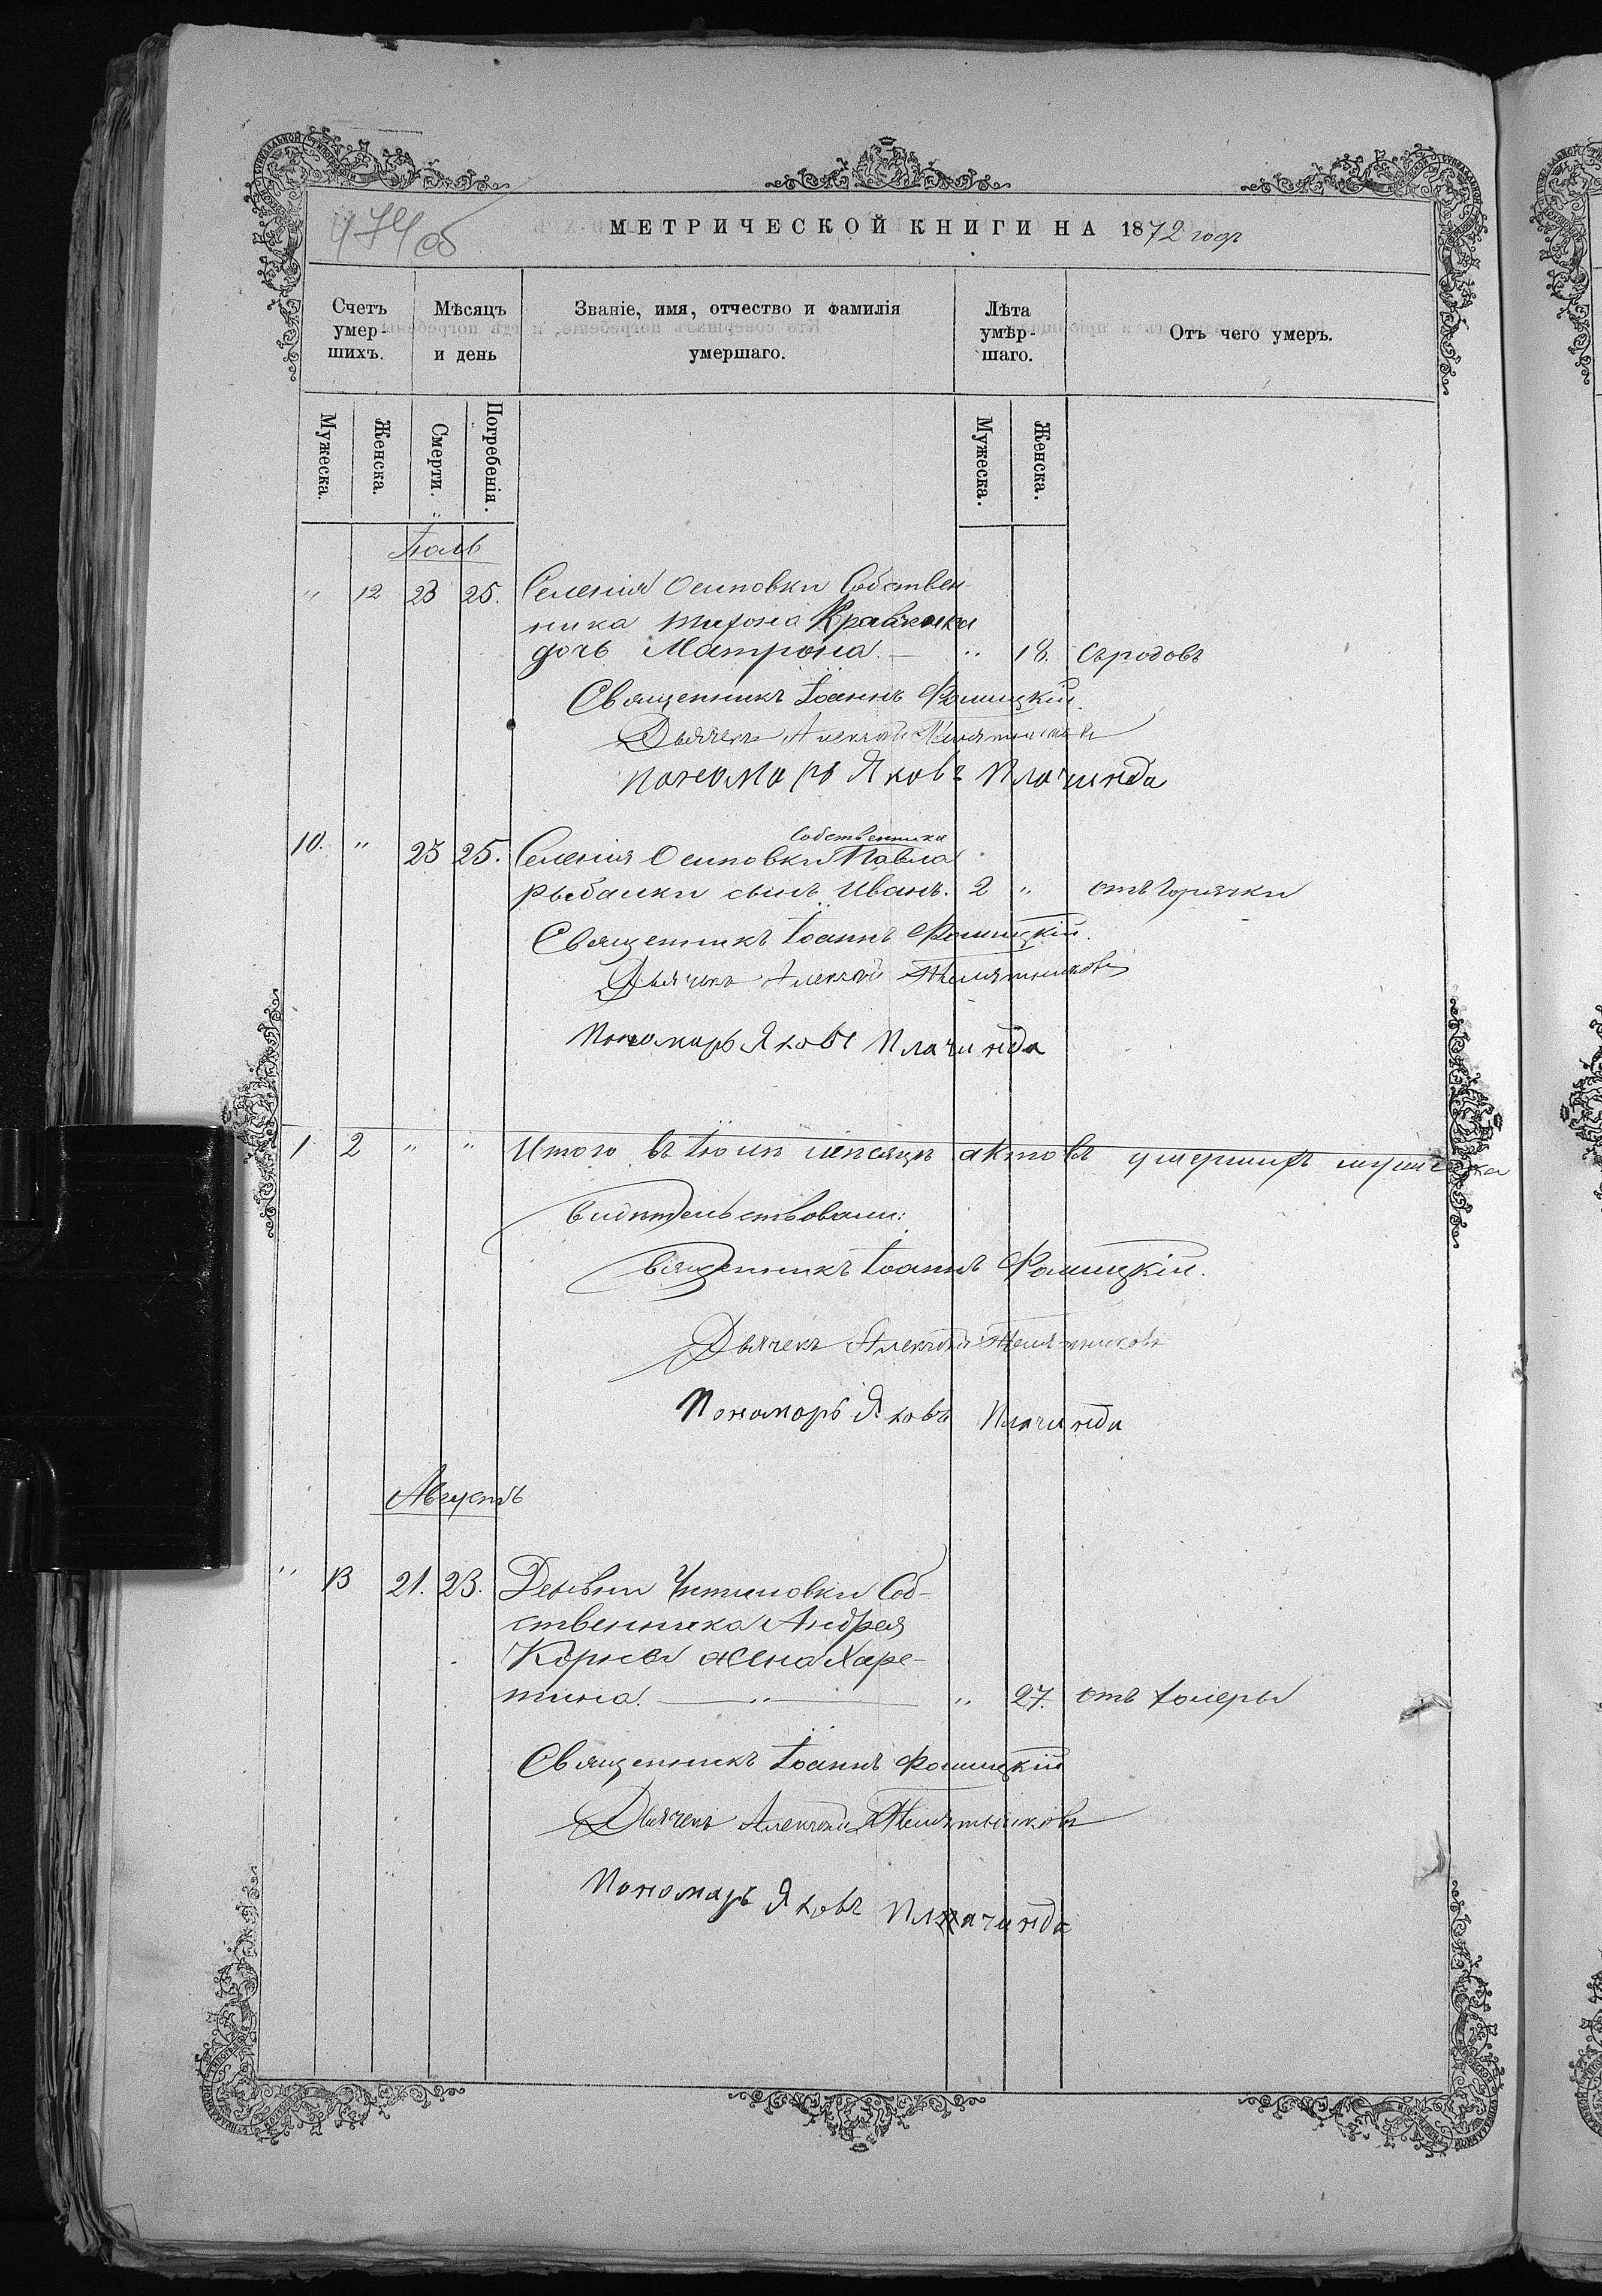 474 об
МЕТРИЧЕСКОЙ КНИГИ НА 1872 годъ
Счетъ умер-шихъ. Мѣсяцъ и день Званіе, имя, отчество и фамилія умершаго. Лѣта умѣр-шаго. Отъ чего умеръ.
Мужеска. Женска. Смерти. Погребенія. Мужеска. Женска.
Іюль
" 12 23 25. Селенія Осиповки Собствен-
ника Тихона Кравченка
дочь Матрона. — " 18. Съ родовъ
Священникъ Іоаннъ Фомицкій.
Дьячекъ Алексѣй Телятниковъ
Пономарь Яковъ Плачинда
Собственника
10. " 23 25. Селенія Осиповки Павла
рыбалки сынъ Иванъ. 2 " отъ Горячки
Священникъ Іоаннъ Фомицкій.
Дьячекъ Алексѣй Телятниковъ
Пономарь Яковъ Плачинда
1 2 " " Итого въ Іюлѣ мѣсяцѣ актовъ умершихъ мужеска
Свидѣтельствовали:
Священникъ Іоаннъ Фомицкій.
Дьячекъ Алексѣй Телятниковъ
Пономарь Яковъ Плачинда
Августъ
" 13 21. 23. Деревни Соб-
ственника Андрея
жена Харе-
тина. — " — " 27. отъ холеры
Священникъ Іоаннъ Фомицкій
Дьячекъ Алексѣй Телятниковъ
Пономарь Яковъ Плачинда